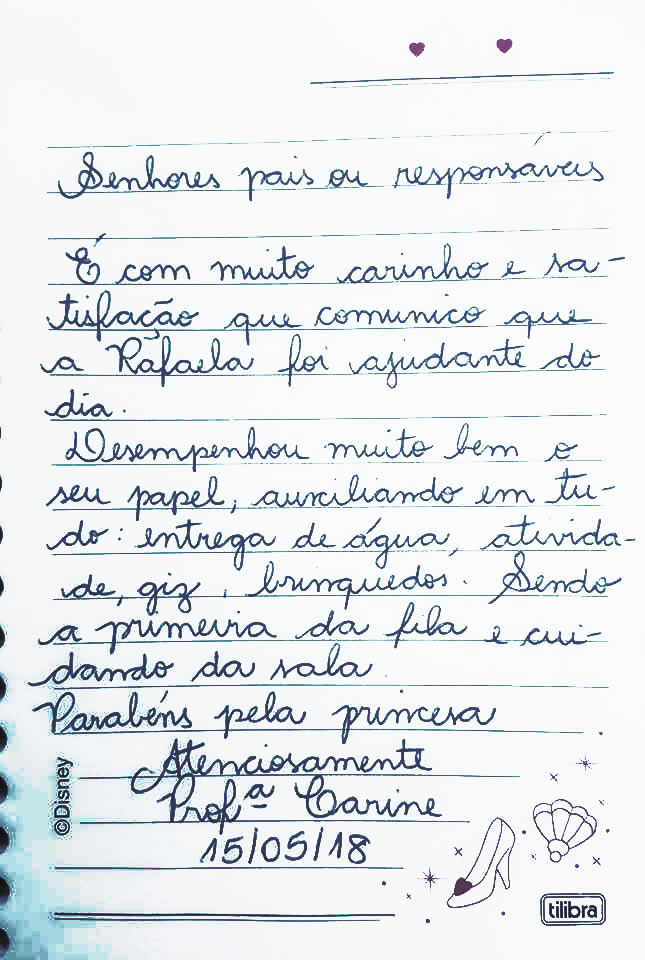 Senhores pais ou responsáveis
É com muito carinho e sa-
tisfação que comunico que
a Rafaela foi ajudante do
dia.
Desempenhou muito bem o
seu papel, auxiliando em tu-
do: entrega de água, ativida-
de, giz, brinquedos. Sendo
a primeira da fila e cui-
dando da sala
Parabéns pela princesa
Atenciosamente
Profª Carine
15/05/18
©Disney
tilibra